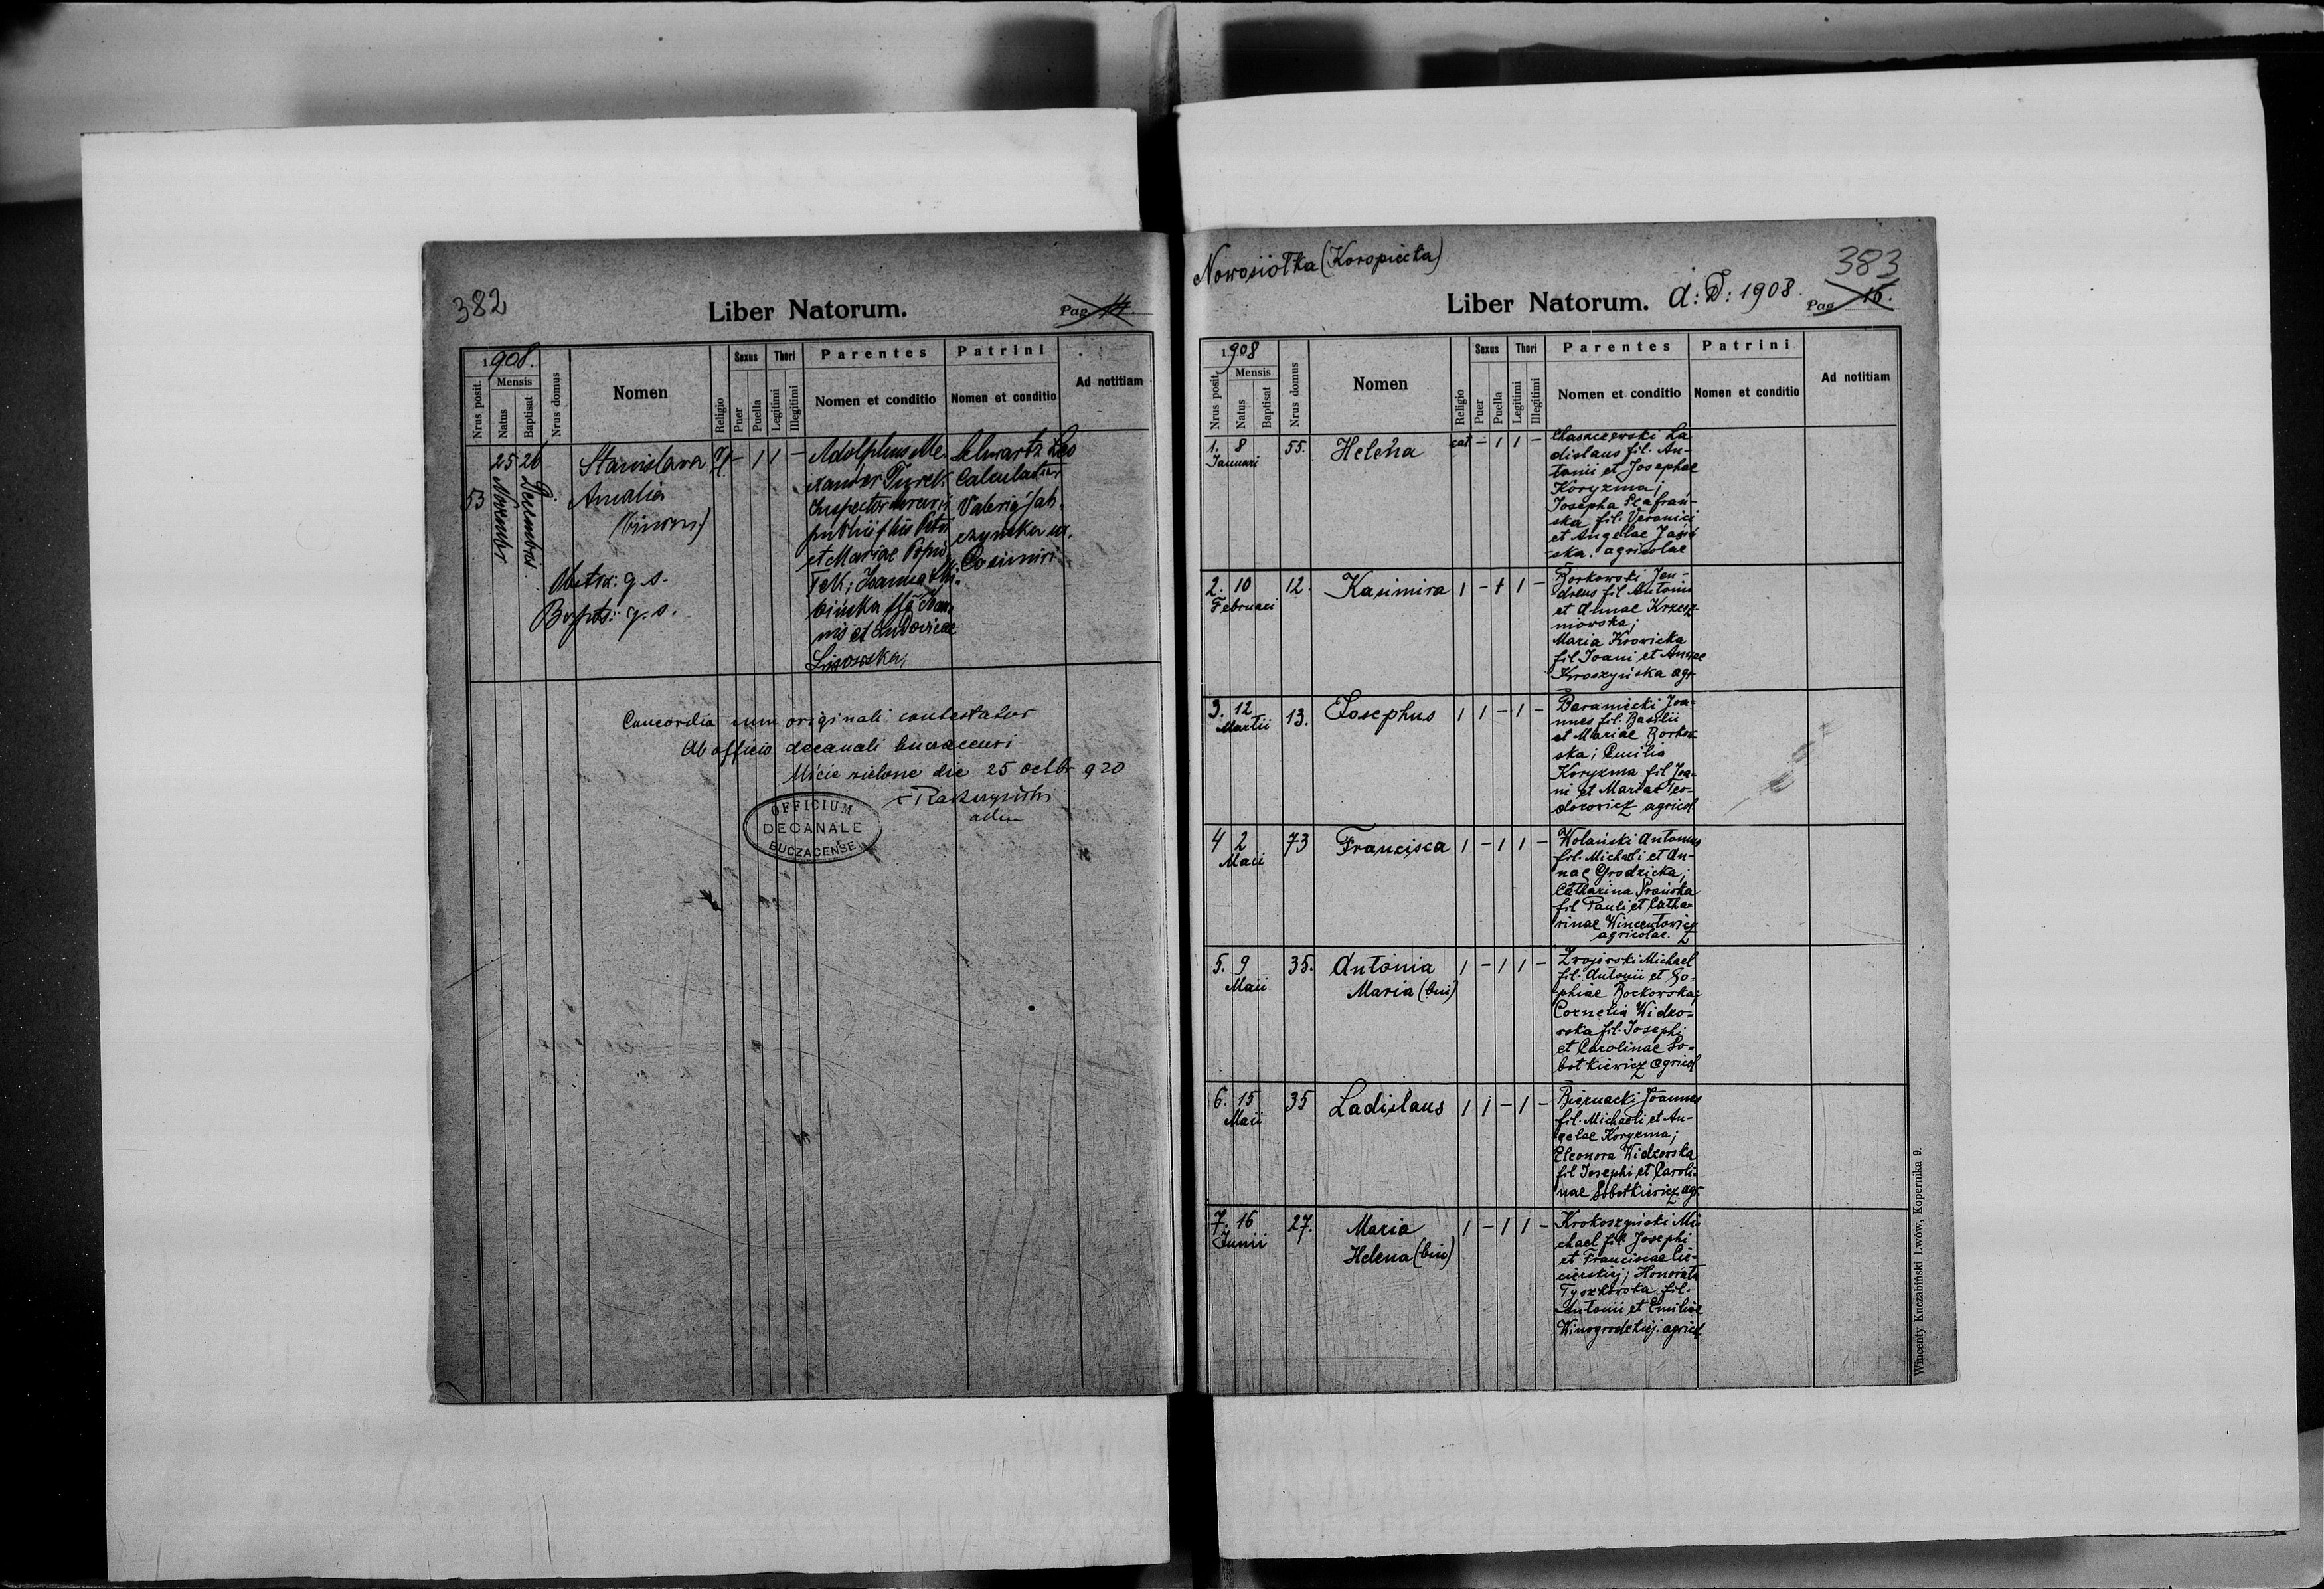 382
Liber Natorum.
Pag. 14.
1908.
Nrus posit.
Mensis
Natus
Baptisat
Nrus domus
Nomen
Religio
Sexus
Puer
Puella
Thori
Legitimi
Illegitimi
Parentes
Nomen et conditio
Patrini
Nomen et conditio
Ad notitiam
53
25 26
Novembr
Decembri
Stanislava
Amalia
(binom)
Obstx: q. s.
Bapts: q. s.
- 1 1 -
Adolphus Ale
xander
Inspector
et Mariae
Joanna
bińska ffa Joan
nis et Ludovicae
Lisowska;
Schwartz Leo
Calculator
Valeria Jah
czynska ux.
Casimiri
Concordia cum originali contestatur
Ab officio decanali buczacensi
Uście zielone die 25 octbr 920
adm
OFFICIUM
DECANALE
BUCZACENSE
Nowosiołka (Koropiecka)
383
Liber Natorum. a: D: 1908.
Pag. 15.
1908
Nrus posit.
Mensis
Natus
Baptisat
Nrus domus
Nomen
Religio
Sexus
Puer
Puella
Thori
Legitimi
Illegitimi
Parentes
Nomen et conditio
Patrini
Nomen et conditio
Ad notitiam
1. 8 55. Helena cat - 1 1 -
Januari
Chaszczewski La
dislaus fil. An-
tonii et Josephae
Koryzma;
Josepha Szafrań-
ska fil. Veronici
et Angelae Jasiń
ska. agricolae
2. 10 12. Kasimira 1 - 1 1 -
Februari
Borkowski
dreus fil Antonii
et Annae Krzesz
niowska;
Maria Krowicka
fil Joani et Annae
Kroszyńska agr
3. 12 13. Josephus 1 1 - 1 -
Martii
Baraniecki Joa-
nnes fil. Basilii
et Mariae Borkow
ska; Emilia
Koryzma fil Joa-
ni et Mariae Teo-
dorowicz agricol
4 2 73 Francisca 1 - 1 1 -
Maii
Wolański Antonius
fil. Michaeli et An-
nae Grodzicka;
Catharina Prońska
fil Pauli et Catha-
rinae Wincentowicz
agricolae.
5. 9 35. Antonia 1 - 1 1 -
Maii
Maria (bin)
Michael
fil. Antonii et So-
phiae Borkowska;
Cornelia Widzo-
wska fil. Josephi
et Carolinae So-
botkiewicz agricol
6. 15 35 Ladislaus 1 1 - 1 -
Maii
Biernacki Joannes
fil. Michaeli et An-
gelae Koryzma;
Eleonora Widzowska
fil Josephi et Caroli-
nae Sobotkiewicz. agr.
7. 16 27. Maria 1 - 1 1 -
Junii
Helena (bin)
Krokoszyński Mi
chael fil Josephi
et Franciscae Cie-
cierskiej; Honorata
Tyszkowska fil.
Antonii et Emiliae
Winogrodzkiej. agricol.
Wincenty Kuczabiński Lwów, Kopernika 9.